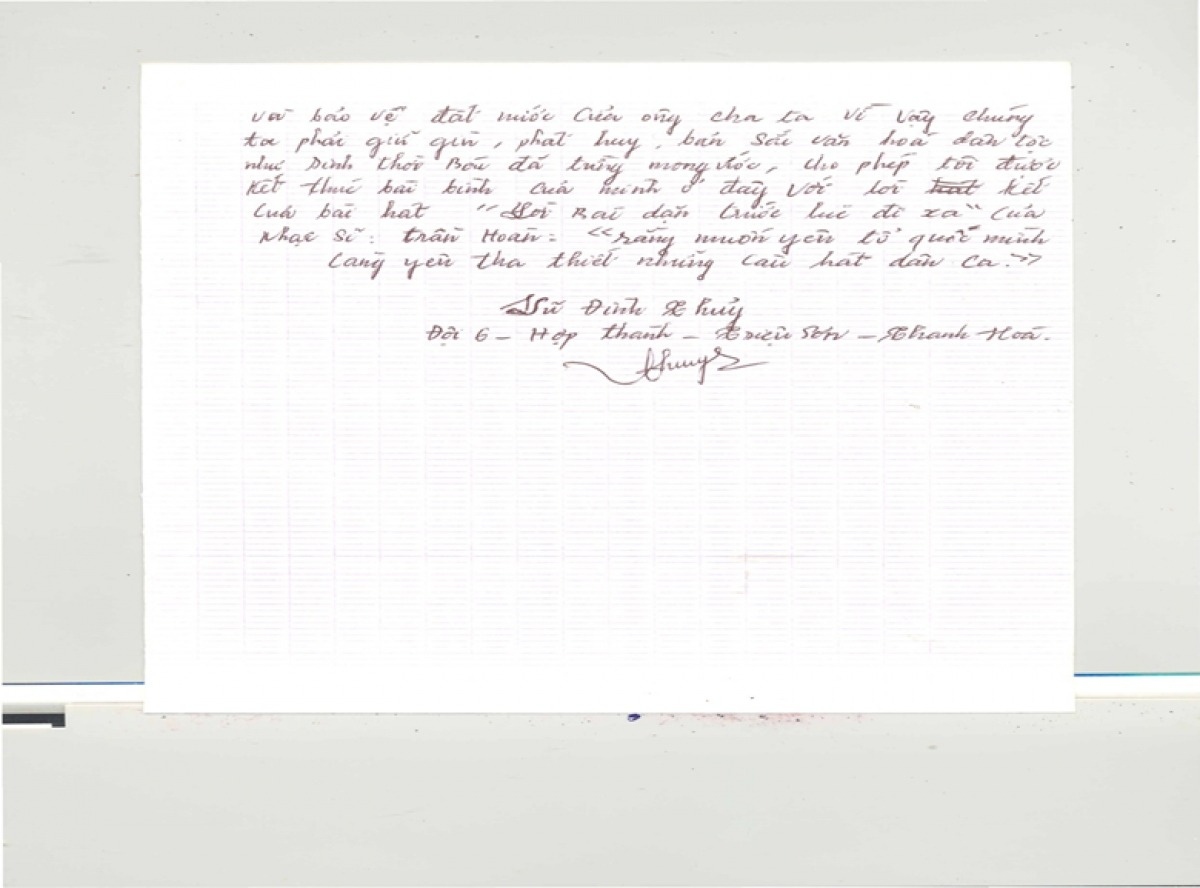 và bảo vệ đất nước của ông cha ta vì vậy chúng
ta phải giữ gìn, phát huy, bản sắc văn hoá dân tộc
như sinh thời Bác đã từng mong ước, cho phép tôi được
kết thúc bài bình của mình ở đây với lời hát kết
của bài hát "Lời Bác dặn trước lúc đi xa" của
nhạc sĩ: trần Hoàn: "rằng muốn yêu tổ quốc mình
Càng yêu tha thiết những câu hát dân ca."
Đình Thuỷ
Đội 6 - Hợp thành - Triệu Sơn - Thanh Hoá.